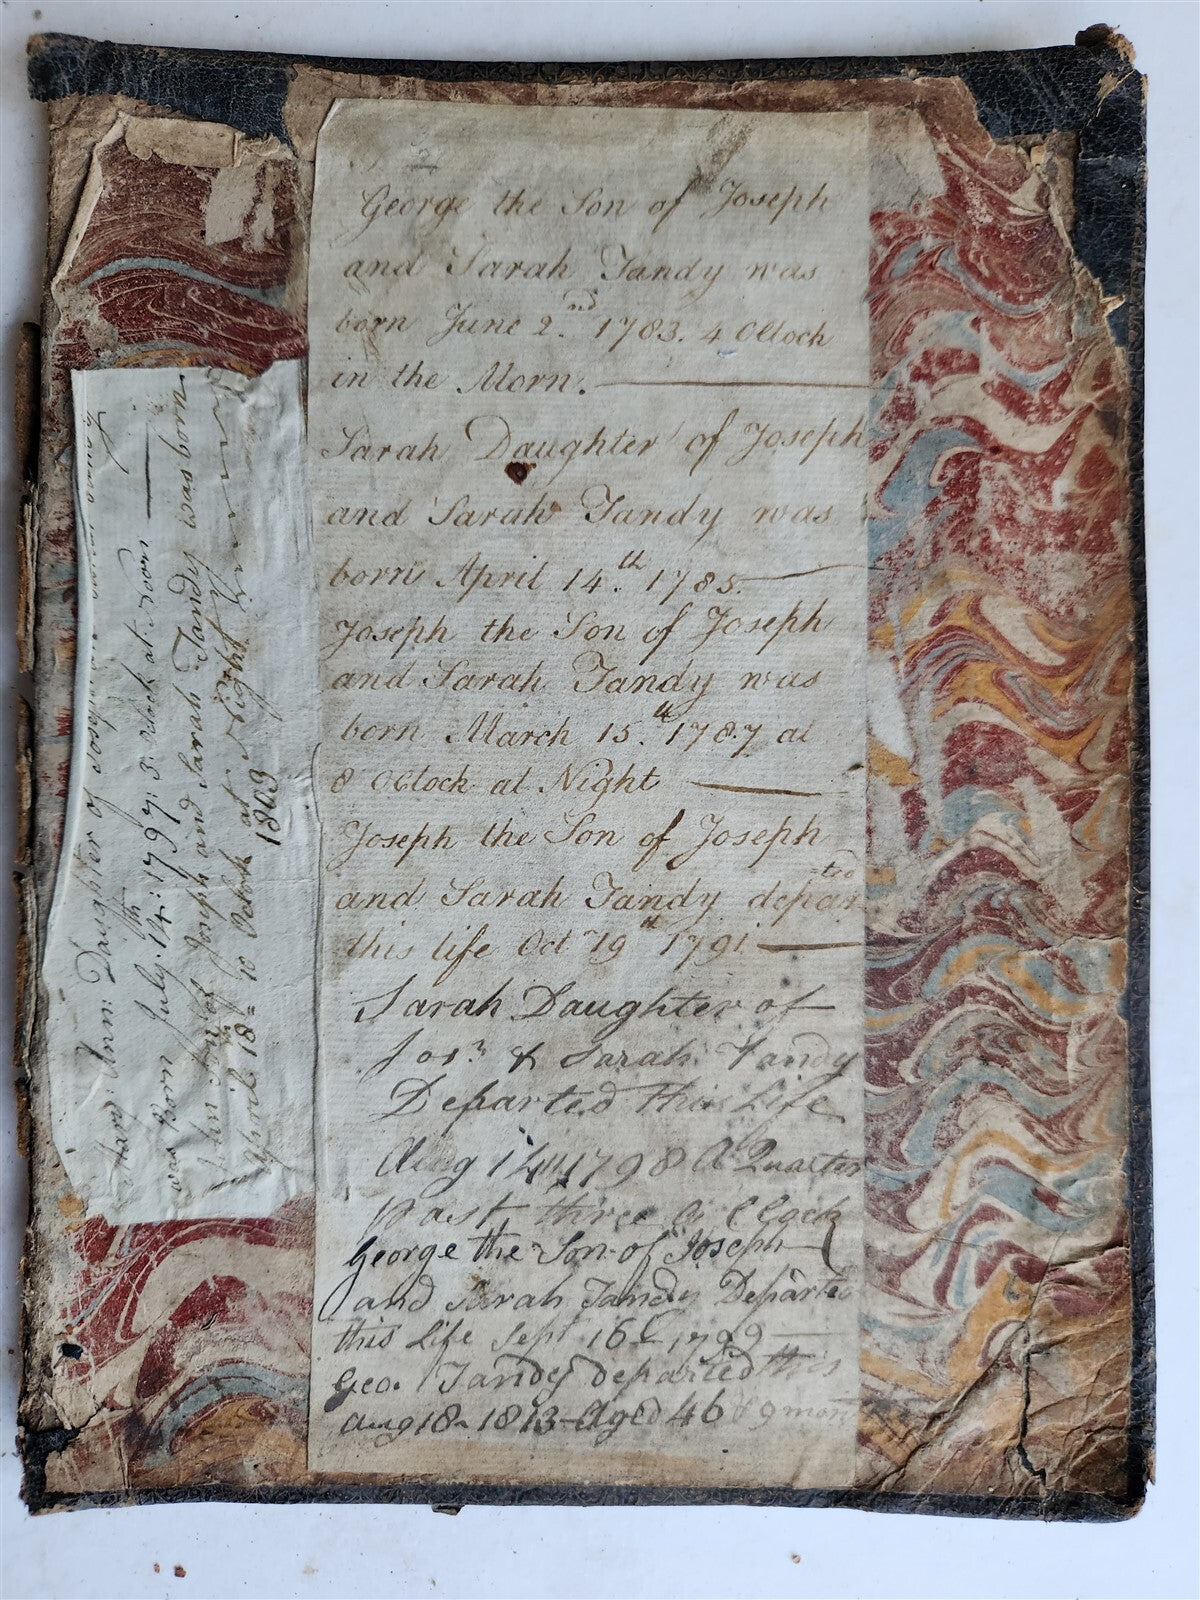 George the Son of Joseph
and Sarah Tandy was
born June 2.nd 1783. 4 OClock
in the Morn.
Sarah Daughter of Joseph
and Sarah Tandy was
born April 14.th 1785.
Joseph the Son of Joseph
and Sarah Tandy was
born March 15.th 1787 at
8 OClock at Night
Joseph the Son of Joseph
and Sarah Tandy departed
this life Oct 19th 1791
Sarah Daughter of
Jos. & Sarah Tandy
Departed this Life
Aug 14th 1798 A Quarter
Past three a Clock
George the Son of Joseph
and Sarah Tandy Departed
this Life Sept 16 1799
Geo. Tandy departed this
Aug 18 1813 Aged 46 & 9 mon
Mary: Ann: Daughter of Joseph
was born July: 14th: 1797: 3: Oclock at Noon
John Son of Joseph and Sarah Tandy was born
April 18= 10 Oclock at Night
1803